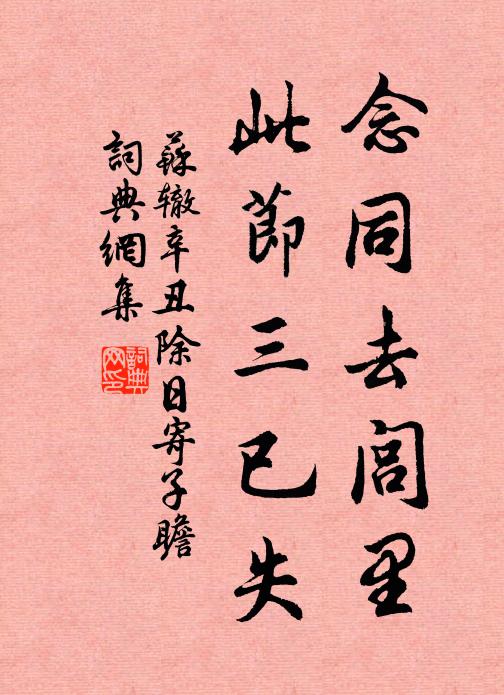 念同去閭里
此節三已失
蘇辙辛丑除日寄子瞻
詞典網集
詞典
网印